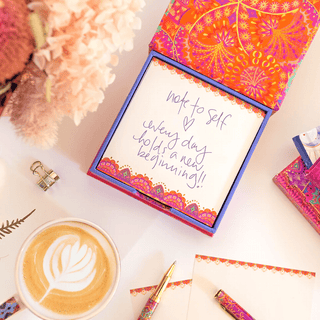 note to self
every day
holds a new
beginning!!